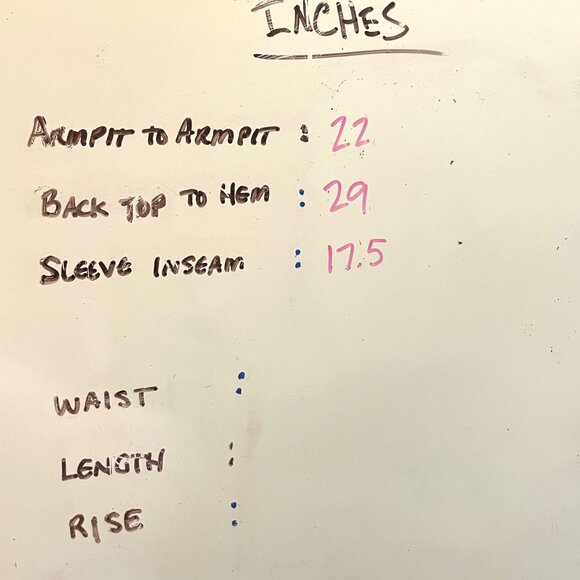 INCHES
ARMPIT TO ARMPIT : 22
BACK TOP TO HEM : 29
SLEEVE INSEAM : 17.5
WAIST :
LENGTH :
RISE :